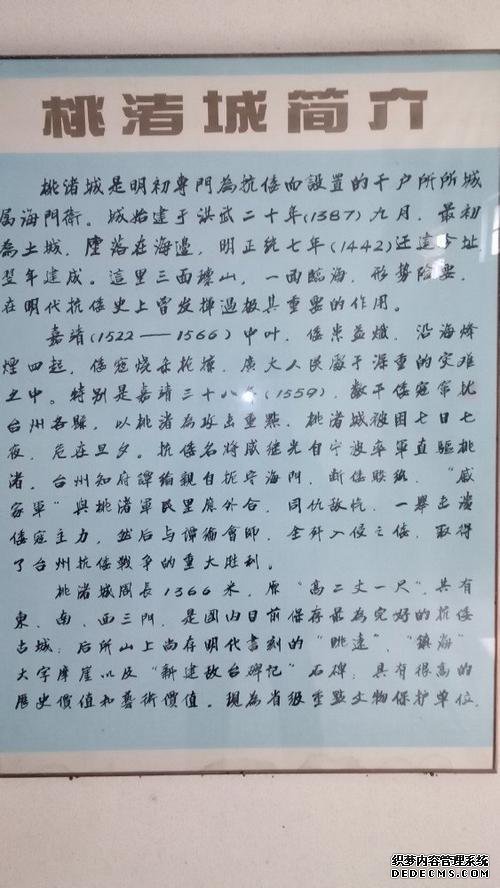 桃渚城简介
桃渚城是明初專門為抗倭而設置的千户所所城
属海門衛。城始建于洪武二十年(1387)九月,最初
為土城,座落在海邊,明正统七年(1442)迁建今址
翌年建成。這里三面環山,一面臨海,形势险要,
在明代抗倭史上曾发揮過极其重要的作用。
嘉靖(1522——1566)中叶,倭患益熾,沿海烽
煙四起,倭寇烧杀抢掠,廣大人民處于深重的灾难
之中。特别是嘉靖三十八年(1559),數千倭寇窜犯
台州各縣,以桃渚為攻击重點,桃渚城被困七日七
夜,危在旦夕。抗倭名將戚继光自宁波率軍直驅桃
渚,台州知府譚綸親自扼守海門,断倭联络,“戚
家軍”與桃渚軍民里应外合,同仇敌忾,一舉击溃
倭寇主力,然后与譚綸會師,全歼入侵之倭,取得
了台州抗倭戰争的重大胜利。
桃渚城周長1366米,原“高二丈一尺”,共有
東、南、西三門,是國内目前保存最為完好的抗倭
古城;后所山上尚存明代書刻的“眺遠”、“鎮海”
大字摩崖以及“新建敌台碑记”石碑,具有很高的
歷史價值和藝術價值。現為省级重點文物保护單位。
织梦内容管理系统
DEDECMS.COM